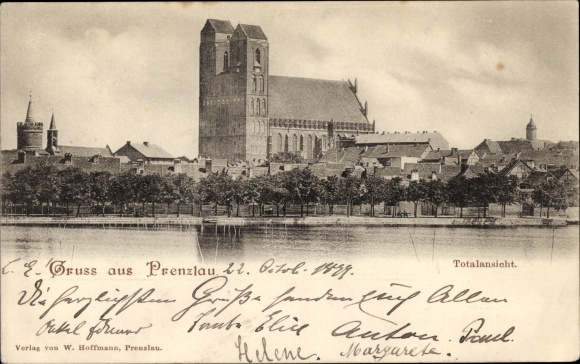 L. E.! Gruss aus Prenzlau. 22. Octob. 1899.
Totalansicht.
Die herzlichsten Grüße senden Euch Allen
Onkel Tante Elise Anton. Paul.
Helene. Margarete.
Verlag von W. Hoffmann, Prenzlau.